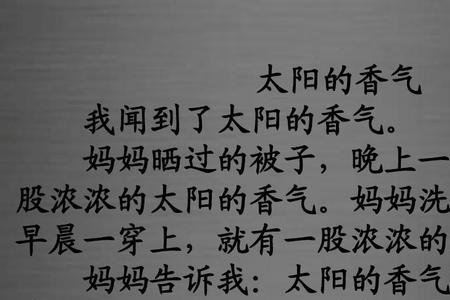 太阳的香气
我闻到了太阳的香气。
妈妈晒过的被子，晚上一
股浓浓的太阳的香气。妈妈洗
早晨一穿上，就有一股浓浓的
妈妈告诉我：太阳的香气